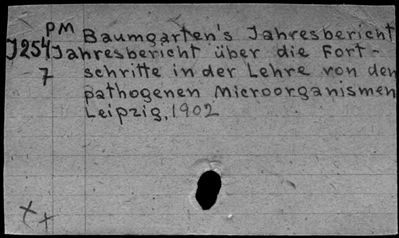 PM Baumgarten's Jahresbericht
J254 Jahresbericht über die Fort-
7 schritte in der Lehre von den
pathogenen Microorganismen
Leipzig, 1902
x x